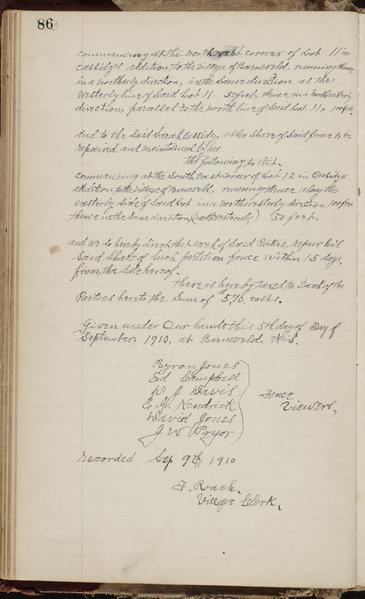 86
commencing at the north corner of Lot 11 in
Cassidy's addition to the village of Barneveld, running thence
in a northerly direction, in the same direction as the
Westerly line of said Lot 11 50 feet, thence in a northwesterly
direction, parallel to the north line of said Lot 11,
and to the said Sarah Cassidy, as her share of said fence to be
repaired and maintained by her
The following to wit.
commencing at the South East corner of Lot 12 in Cassidy's
addition to the village of Barneveld, running thence along the
easterly side of said Lot in a northwesterly direction 100 feet
thence in the same direction (northwesterly) 50 feet.
and we do hereby direct that each of said Parties, repair his
said share of such partition fence within 15 days,
from the date hereof.
There is hereby taxed to Each of the
Parties hereto the sum of 5,76 costs.
Given under Our hands this 5th day of Day of
September 1910, at Barneveld, Wis.
Byron Jones
Ed Campbell
W J Davis
E. M. Kendrick
David Jones
J W Pryor
Fence
Viewers,
Recorded Sep 9th 1910
F. Roach,
Village Clerk,